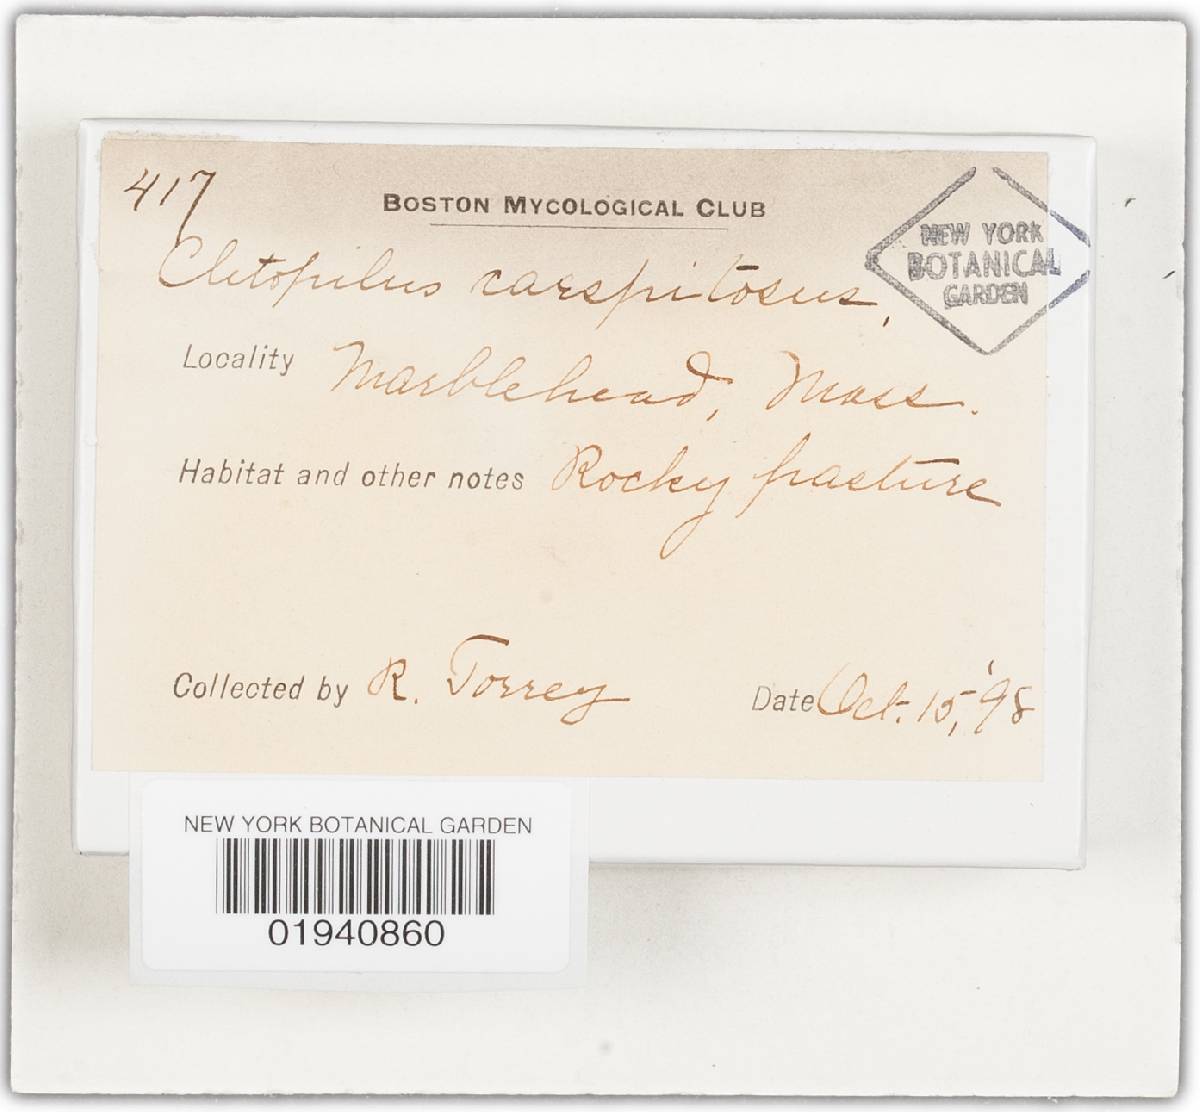 417
BOSTON MYCOLOGICAL CLUB
NEW YORK
BOTANICAL
GARDEN
Clitopilus caespitosus,
Locality Marblehead, Mass.
Habitat and other notes Rocky pasture
Collected by R. Torrey Date Oct. 15, '98
NEW YORK BOTANICAL GARDEN
01940860